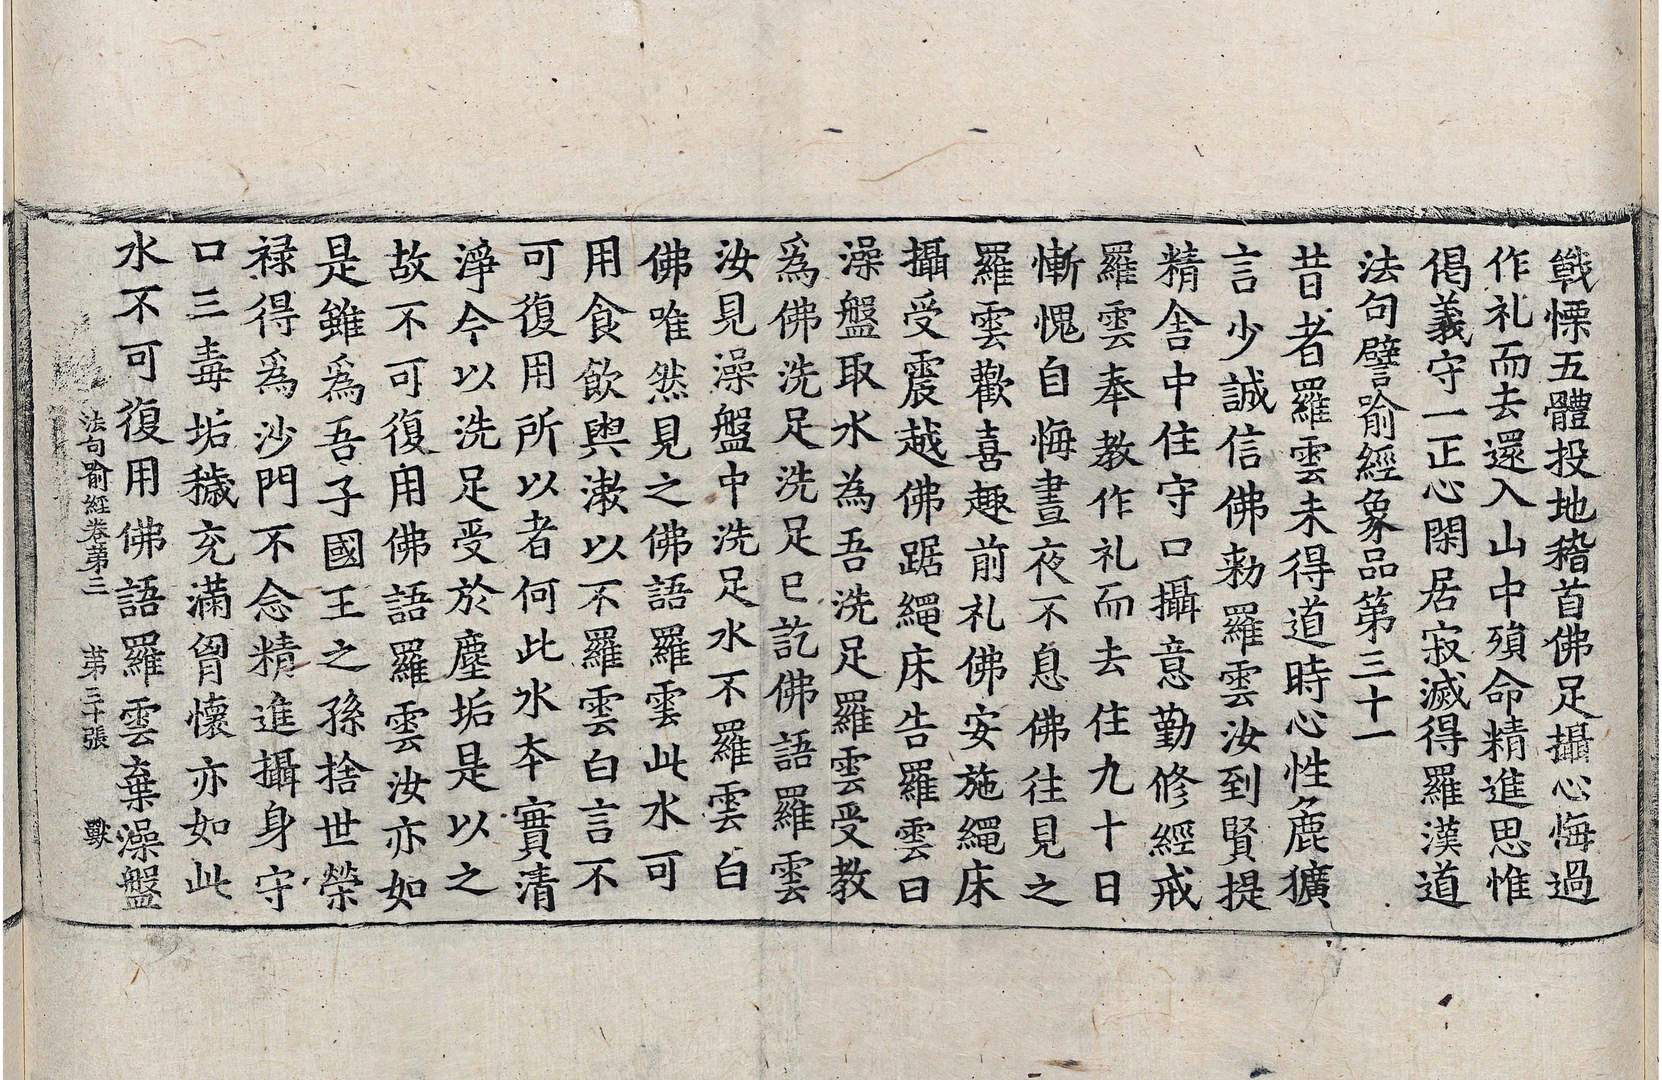 戰慄五體投地稽首佛足攝心悔過
作礼而去還入山中殞命精進思惟
偈義守一正心閑居寂滅得羅漢道
法句譬喻經象品第三十一
昔者羅雲未得道時心性麁獷
言少誠信佛勑羅雲汝到賢提
精舍中住守口攝意勤修經戒
羅雲奉教作礼而去住九十日
慚愧自悔晝夜不息佛往見之
羅雲歡喜趣前礼佛安施繩床
攝受震越佛踞繩床告羅雲曰
澡盤取水為吾洗足羅雲受教
爲佛洗足洗足已訖佛語羅雲
汝見澡盤中洗足水不羅雲白
佛唯然見之佛語羅雲此水可
用食飲與漱以不羅雲白言不
可復用所以者何此水夲實清
淨今以洗足受於塵垢是以之
故不可復用佛語羅雲汝亦如
是雖爲吾子國王之孫捨世榮
禄得爲沙門不念精進攝身守
口三毒垢穢充滿胷懷亦如此
水不可復用佛語羅雲棄澡盤
法句喻經卷第三 第三十張 獸